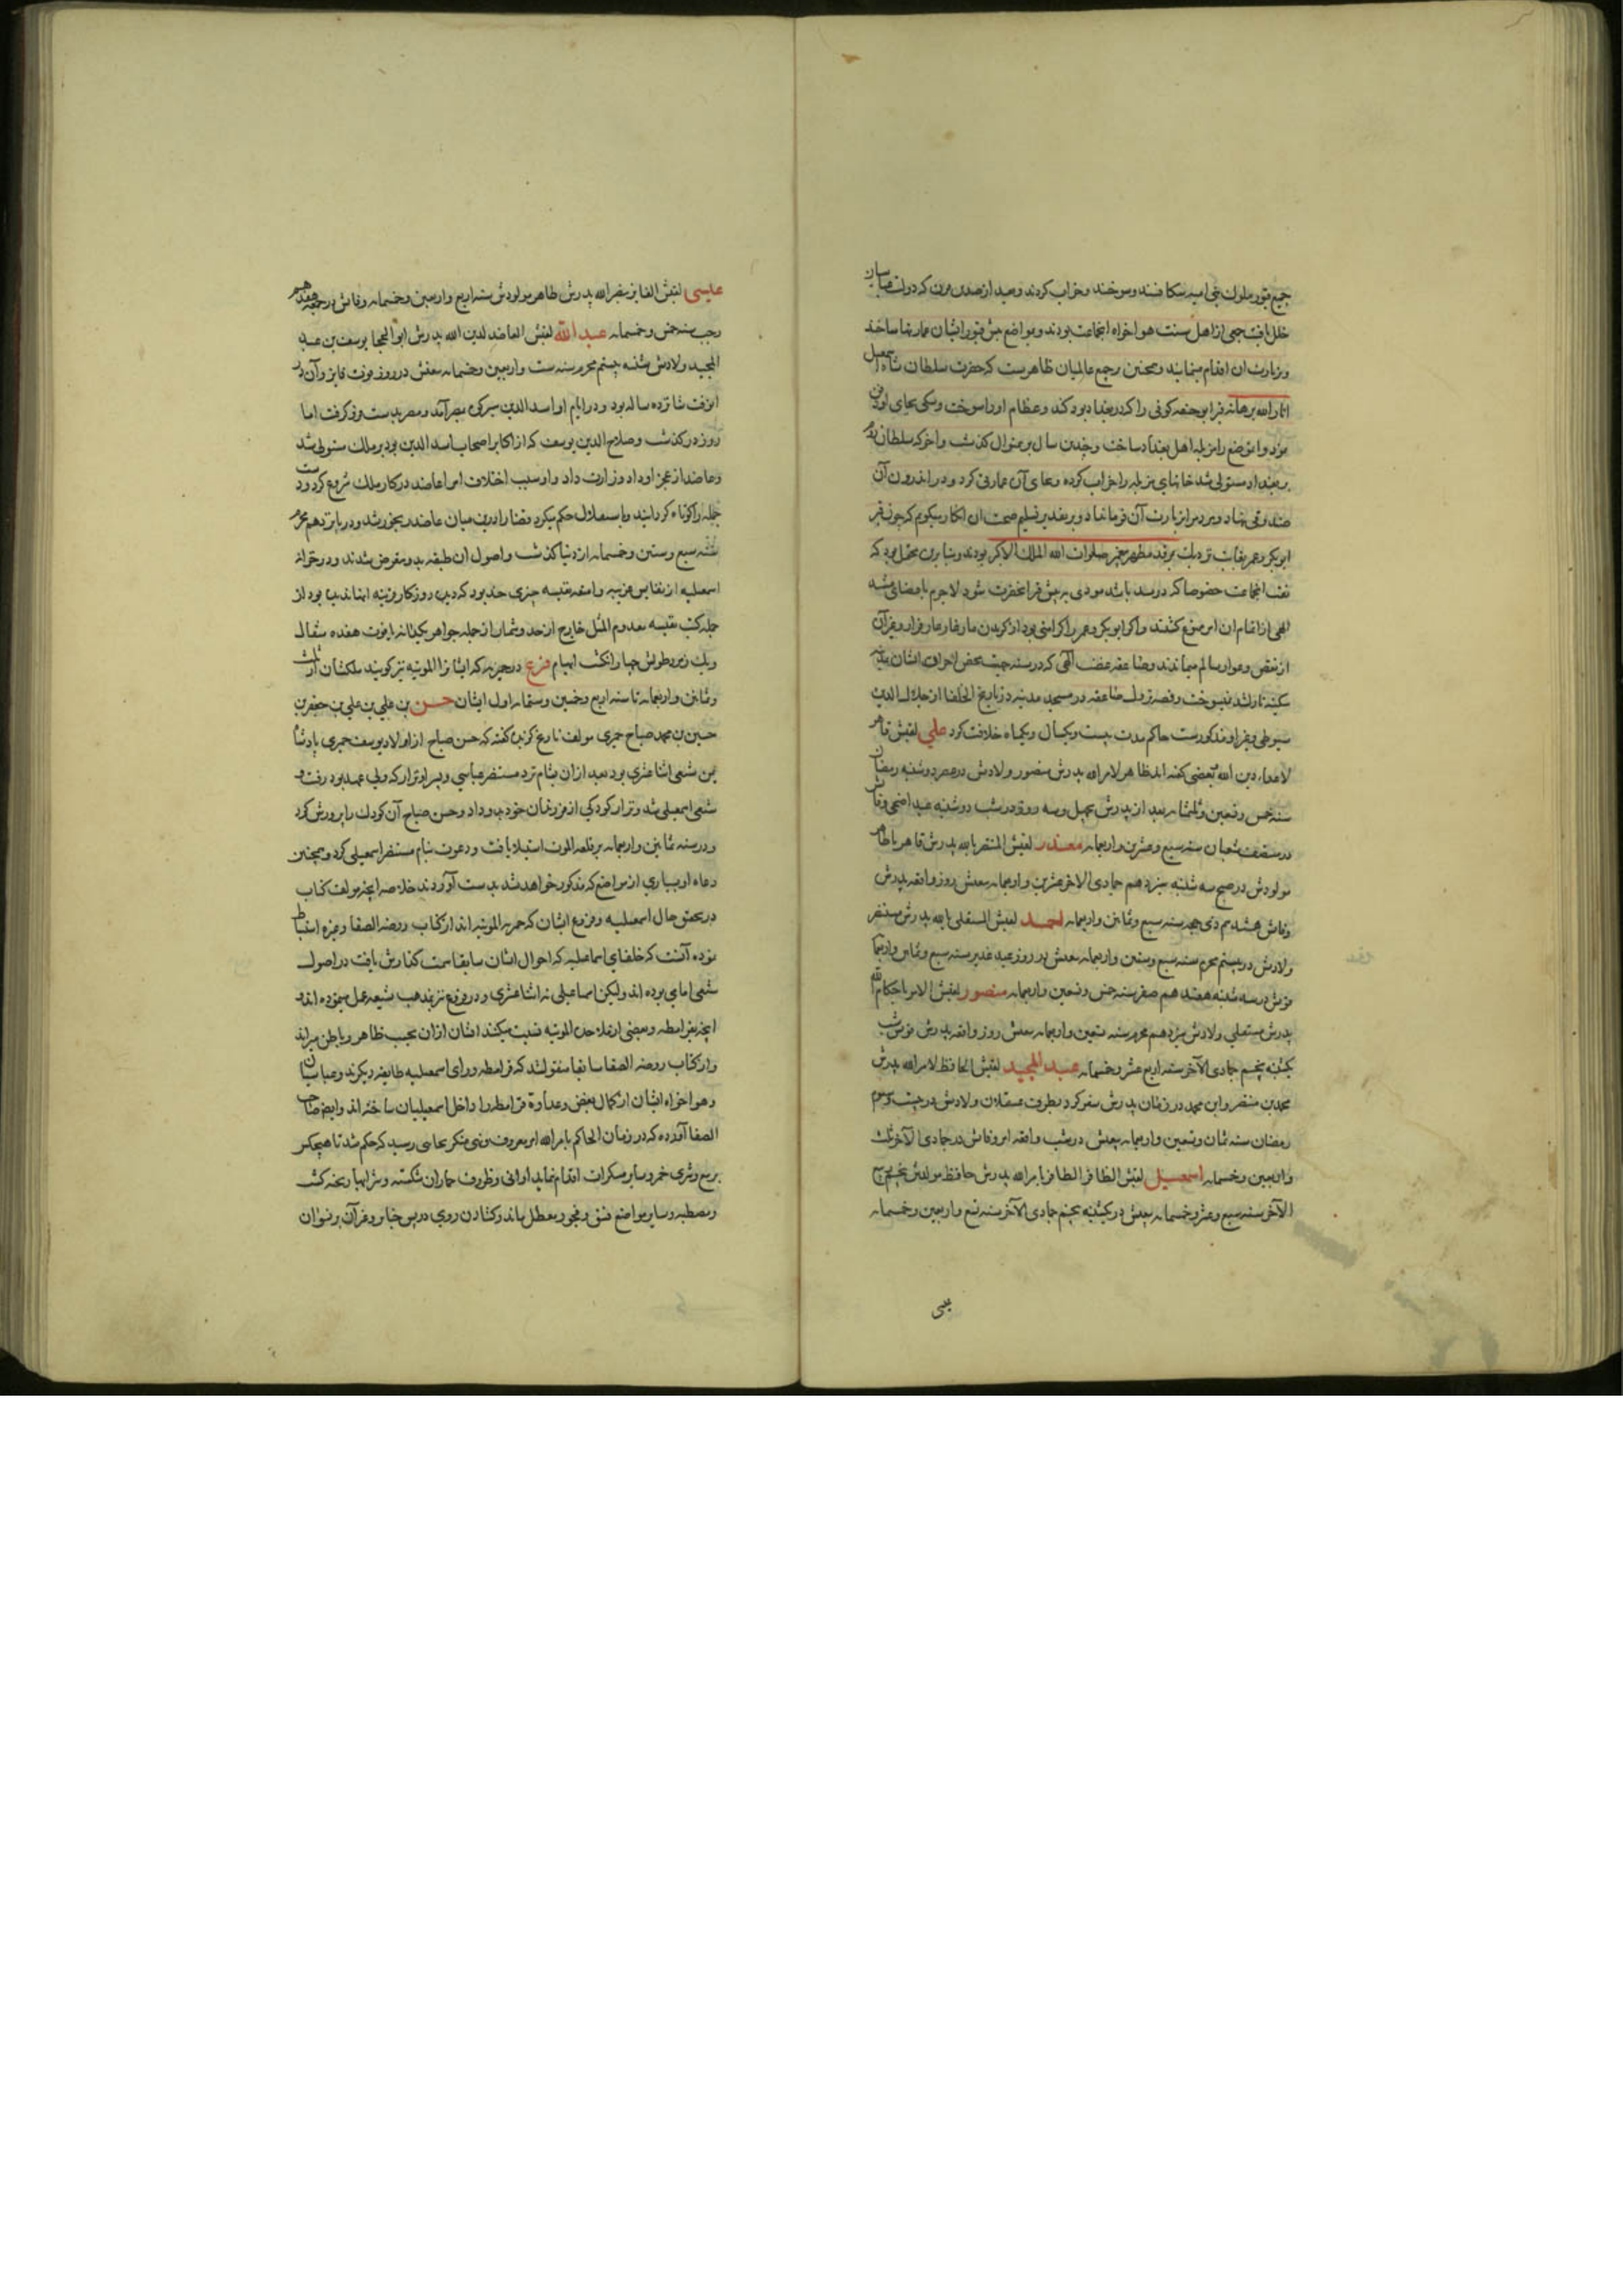 جمیع قبور ملوک بنی امیه بشکافتند و سوختند و خراب کردند و بعد از مدتی که دولت عباسیان
خلل یافت جمعی از اهل سنت هواخواه انجماعت بودند و مواضع قبور ایشان عمارتها ساختند
و زیارت آن اقدام مینمایند و همچنین بر جمیع عالمیان ظاهرست که حضرت سلطان شاه اسمعیل
انار الله برهانه قبر ابو حنیفه کوفی را که در بغداد بود کند و عظام او را سوخت و سکی بجای او دفن
نمود و آن موضع را مزبله اهل بغداد ساخت و چندین سال برین منوال گذشت و آخر که سلطان روم
بر بغداد مستولی شد خانهای مزبله را خراب کرده و بجای آن عمارتی کرد و در اندرون آن
صندوقی نهاد و مردم را زیارت آن فرمان داد و بر تقدیر تسلیم صحت آن انکار میگویم که چون قبر
ابو بکر و عمر بغایت نزدیک مرقد مطهر پیغمبر صلوات الله الملک الاکبر بودند و بنابرین محتمل بود که
انجماعت خصوصا که در صدد باشد مودی به نبش قبر انحضرت شود لاجرم بامضای مشیت
الهی از اتمام ان امر ممنوع کشتند و اکر ابو بکر و عمر را کرامتی بود از کزیدن مار غار عار فرار و فرار آن
سکینه نازل شد بسوخت و قصه نزول صاعقه در مسجد مدینه در تاریخ الخلفا از جلال الدین
سیوطی و غیر او مذکورست حاکم مدت بیست و یکسال و یکماه خلافت کرد علی لقبش ظاهر
لاعزاز دین الله بعضی کفته اند ظاهر لامر الله پدرش منصور ولادش در عصر دوشنبه رمضان
سنه خمس و تسعین و ثلثمائه بعد از پدرش بچهل و سه روز در شب دوشنبه عید اضحی وفاتش
در منتصف شعبان سنه سبع و عشرین و اربعمائه معد لقبش المستنصر بالله پدرش ظاهر
مولودش در صبح سه شنبه سیزدهم جمادی الاخر عشرین و اربعمائه بیعتش روز واقعه پدرش
وفاتش هشدهم ذی حجه سنه سبع و ثمانین و اربعمائه احمد لقبش المستعلی بالله پدرش مستنصر
ولادش در بیستم محرم سنه سبع و ستین و اربعمائه بیعتش در روز عید غدیر سنه سبع و ثمانین و اربعمائه
فوتش در سه شنبه هفدهم صفر سنه خمس و تسعین و اربعمائه منصور لقبش الامر باحکام الله
پدرش مستعلی ولادش سیزدهم محرم سنه تسعین و اربعمائه بیعتش روز واقعه پدرش فوتش شب
یکشنبه پنجم جمادی الآخر سنه اربع عشر و خمسمائه عبد المجید لقبش الحافظ لامر الله پدرش
محمد بن مستنصر و این محمد در زمان پدرش سفر کرد بطرف عسقلان و ولادش در بیست و سوم
رمضان سنه ثمان و تسعین و اربعمائه بیعتش در شب واقعه امر وفاتش در جمادی الآخر ثلث
و اربعین و خمسمائه اسمعیل لقبش الظافر بامر الله پدرش حافظ مولدش پنجم ربیع
الآخر سنه سبع و عشر و خمسمائه بیعتش در یکشنبه پنجم جمادی الآخر سنه تسع و اربعین و خمسمائه
عیسی
عیسی لقبش الفایز بنصر الله پدرش ظاهر مولودش سنه اربع و اربعین و خمسمائه وفاتش در جمعه هفدهم
رجب سنه خمس و خمسمائه عبد الله لقبش العاضد لدین الله پدرش ابو الحجا یوسف بن عبد
المجید ولادش شنبه بیستم محرم سنه ست و اربعین و خمسمائه بیعتش در روز فوت فایز و آن در
انوقت شانزده ساله بود و در ایام او اسد الدین شیرکی بمصر آمد و مصر بدست فرو کرفت اما
زود درکذشت و صلاح الدین یوسف که از اکابر اصحاب اسد الدین بود بر ملک مستولی شد
و عاضد از عجز او داد وزارت داد و او بسبب اختلاف امرا عاضد در کار ملک شروع کرد و دست
جمله را کوتاه کردانید و باستقلال حکم میکرد قضا را درین میان عاضد رنجور شد و در پانزدهم محرم
سنه سبع و ستین و خمسمائه از دنیا کذشت و اصول ان طبقه بدو منقرض شدند و در خزانه
اسمعیلیه از نفایس غریبه و امتعه نفیسه چیزی چند بود که دیده روزکار قرینه آنها ندیده بود از
جمله کتب نفیسه معدوم المثل خارج از حد و شمار از جمله جواهر یکدانه یاقوت هفده مثقال
و یک زمرد طولش چهار انکشت ابهام فرع در حمیریه که ایشانرا الموتیه نیز کویند ملکشان از ثلث
و ثمانین و اربعمائه تا سنه اربع و خمسین و ستمائه اول ایشان حسن بن علی بن علی بن جعفر بن
حسین بن محمد صباح حمیری مولف تاریخ کزیده کفته که حسن صباح از اولاد یوسف حمیری پادشاه
یمن شیعی اثنا عشری بود بعد از ان بشام نزد مستنصر عباسی و پسر او نزار که ولی عهد بود رفت و
شیعی اسمعیلی شد و نزار کودکی از فرزندان خود بدو داد و حسن صباح آن کودک را پرورش کرد
و در سنه ثمانین و اربعمائه بر قلعه الموت استیلا یافت و دعوت بنام مستنصر اسمعیلی کرد و همچنین
دعاه او بسیاری از مواضع که مذکور خواهد شد بدست آوردند خلاصه آنچه مولف کتاب
در تحقیق حال اسمعیلیه و فروع ایشان که حمیریه الموتیه اند از کتاب روضه الصفا و غیره استنباط
نموده آنست که خلفای اسماعیلیه که احوال ایشان سابقا سمت کذارش یافت در اصول
شیعی امامی بوده اند ولیکن اسماعیلی نه اثنا عشری و در فروع نیز بمذهب شیعه عمل مینموده اند و
آنچه بقرامطه و بعضی از ملاحده الموتیه نسبت میکنند ایشان ازان بحسب ظاهر و باطن مبرااند
و از کتاب روضه الصفا سابقا منقول شد که قرامطه ورای اسمعیلیه طایفه دیکرند و عباسیان
و هواخواه ایشان از کمال بغض و عداوة قرامطه را داخل اسمعیلیان ساخته اند و ایضا صاحب
الصفا آورده که در زمان الحاکم بامر الله امر معروف و نهی منکر بجایی رسید که حکم شد تا هیچکس
بر بیع و شری خمر و سایر مسکرات اقدام ننماید اوانی و ظروف خماران شکسته و شرابها ریخته کشت
و مصطبه و سایر مواضع فسق و فجور معطل ماند و کشادن روی درس خبایر و قرآن بر نسوان